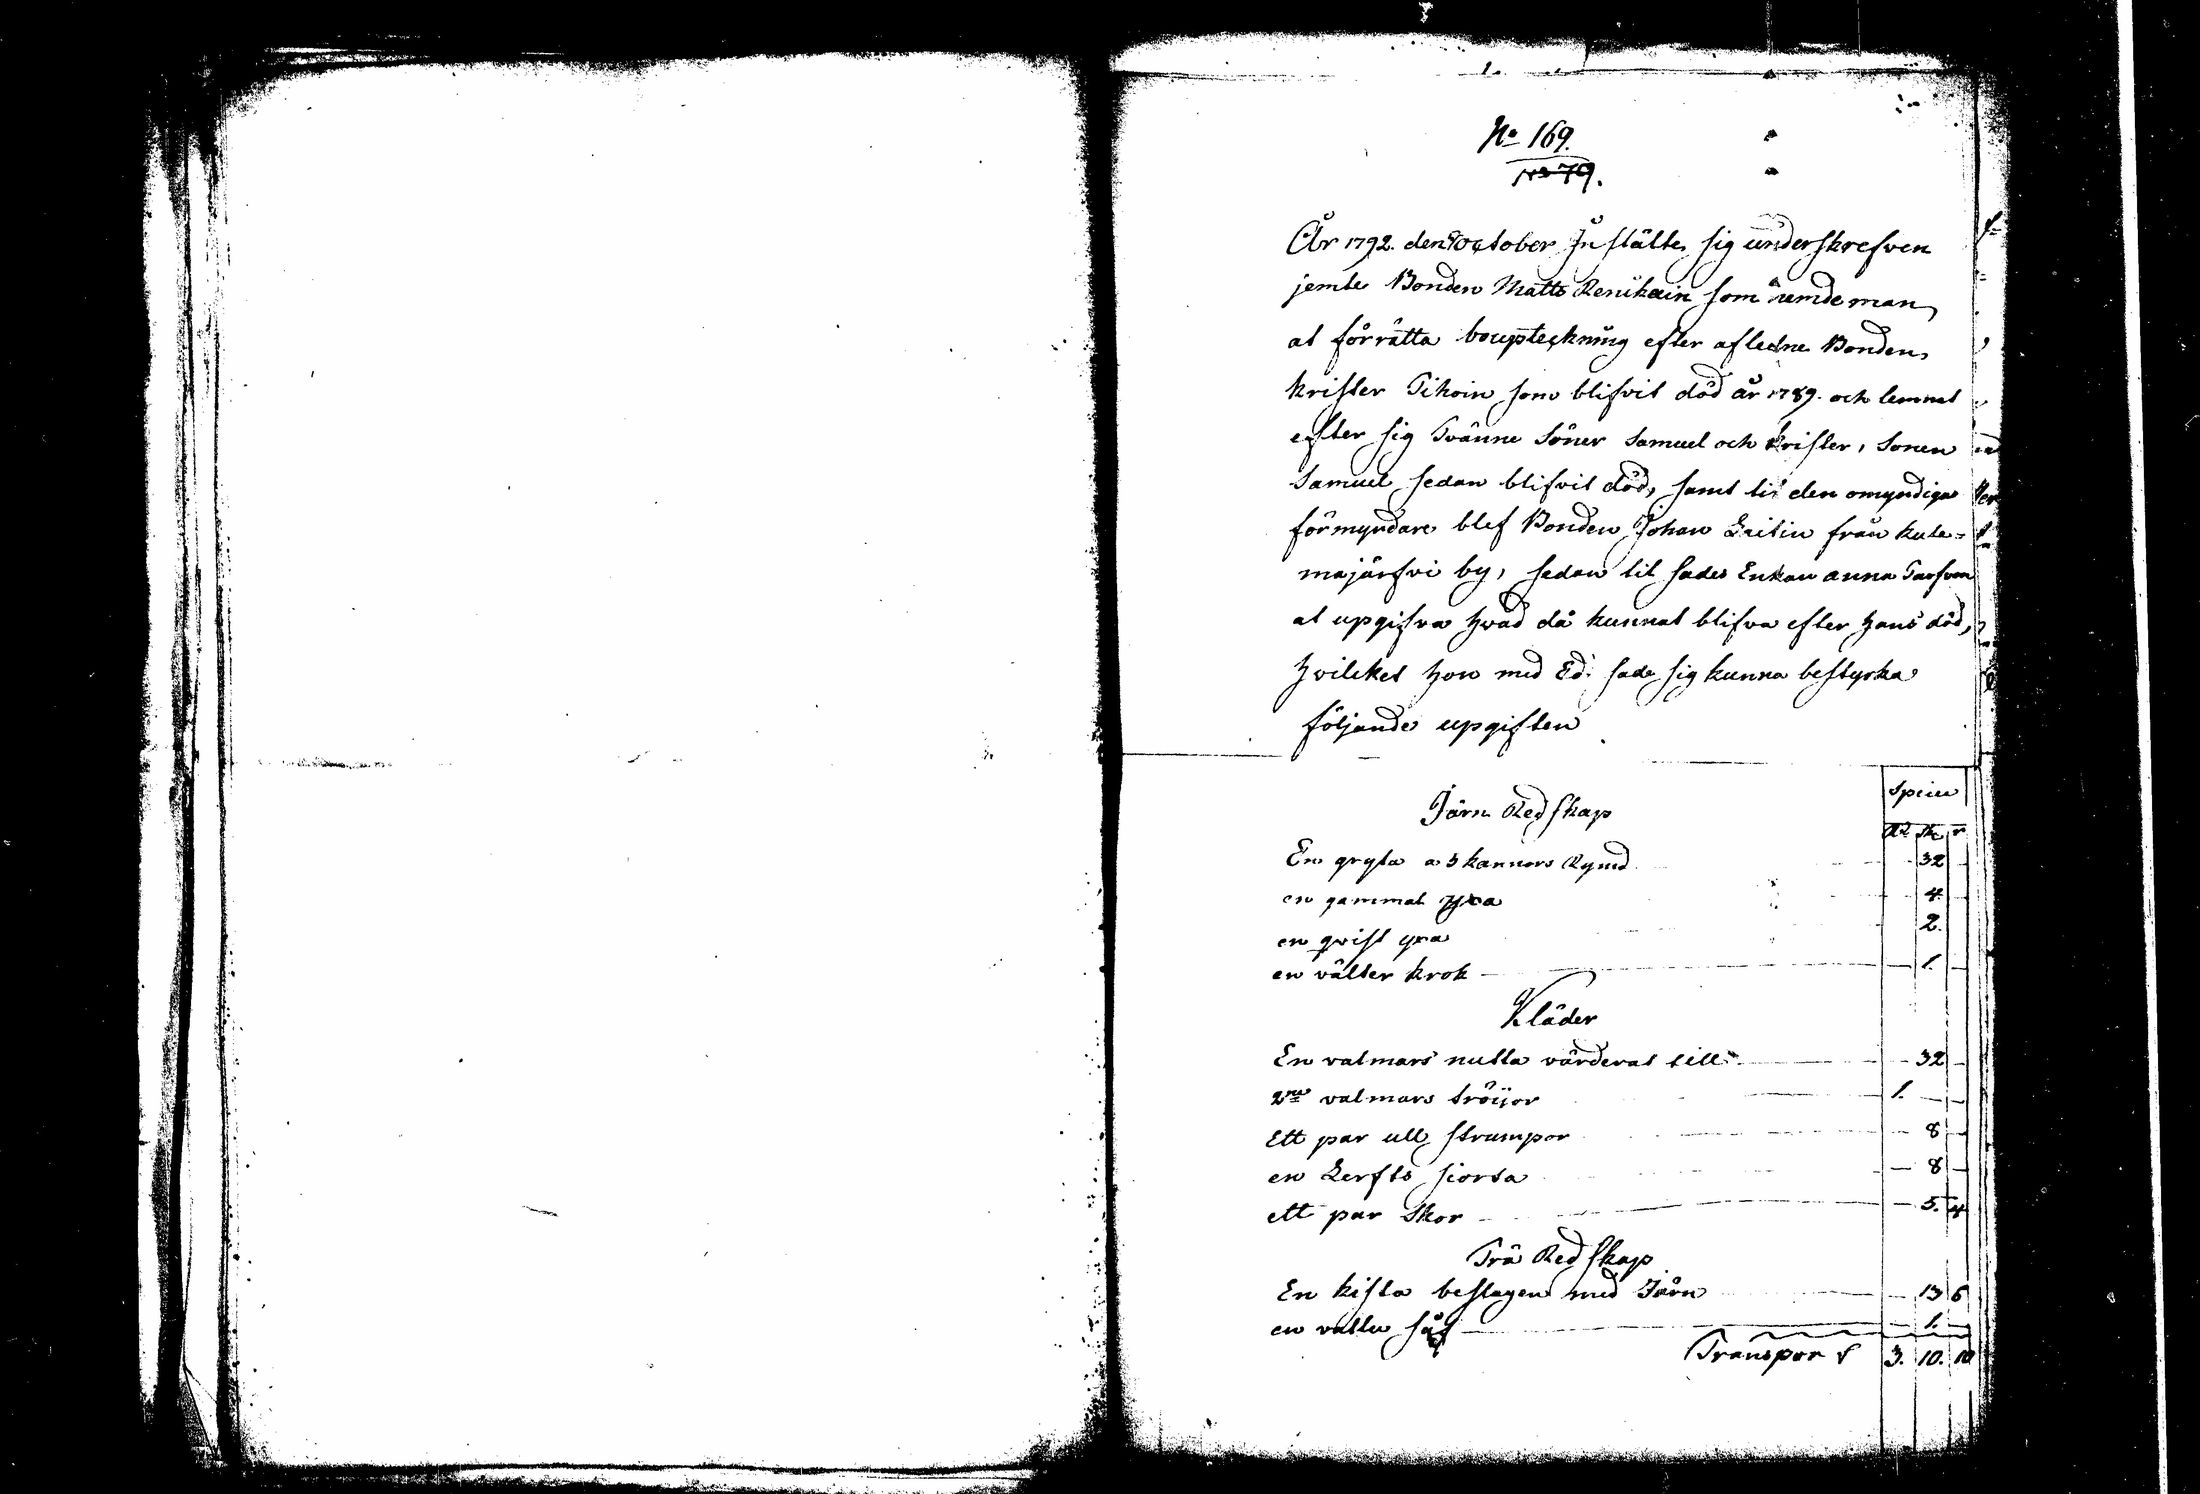 No 169.
No 79.
År 1792. den October Instälte sig underskrefven
jemte Bonden Matts Renikain som nemdeman
at förrätta bouptekning efter afledne Bonden
Krister Tihoin som blifvit död år 1789. och lemnat
efter sig Tvänne Söner Samuel och Krister, Sonen
Samuel sedan blifvit död, samt til den omyndiga
förmyndare blef Bonden Johan Laitin från Kute=
majärfvi by, sedan til sades Enkan anna Tarfvon
at upgifva hvad då kunnat blifva efter hans död,
hvilcket hon med Ed sade sig kunna bestyrka
följande upgiften
Specie
Järn Redskap
Rd sk r
En gryta a 3 kannors Rymd 32
en gammal yxa 4
en qvist yxa 2.
en välter krok 1.
Kläder
En valmars mutta värderat till 32
2ne valmars tröijor 1.
Ett par ull strumpor 8
en Lerfts siorta 8
ett par Skor 5. 4
Trä Redskap
En kista beslagen med Järn 13 6
en vattu så 1.
Transport 3. 10. 10